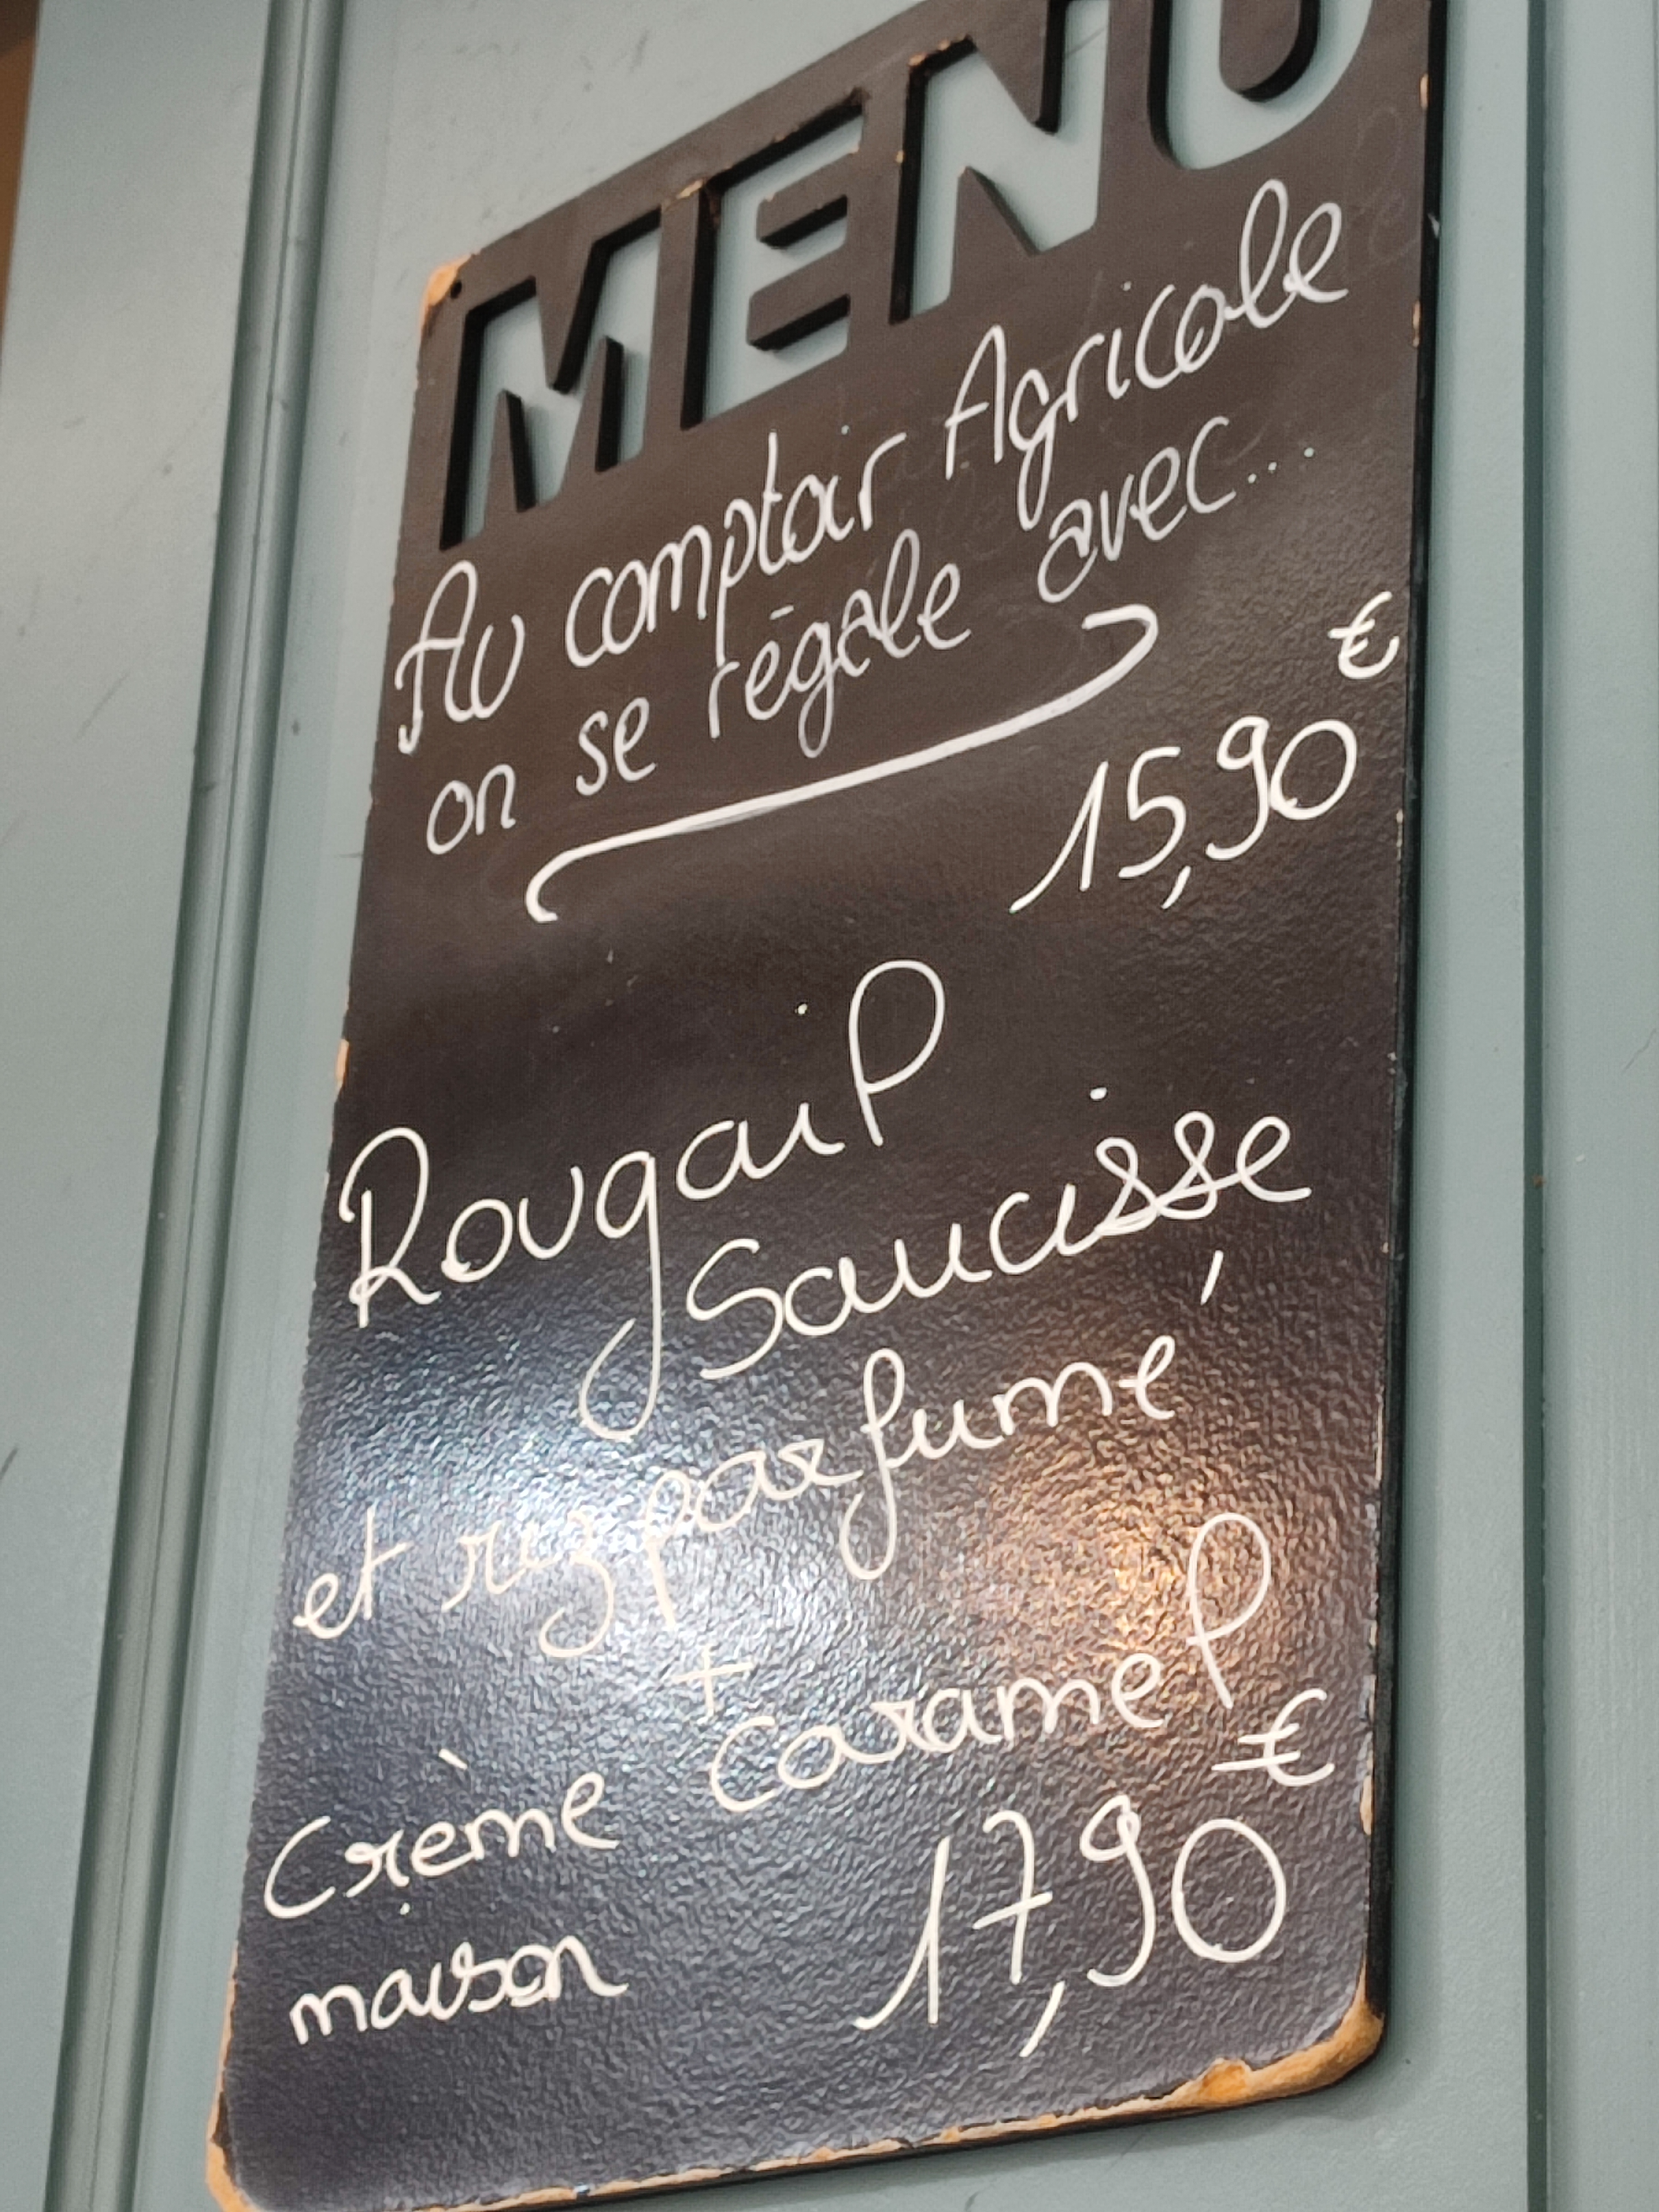 MENU
Au comptoir Agricole
on se régale avec...
15,90 €
Rougail
Saucisse
et riz parfumé
+
Crème caramel
maison 17,90 €